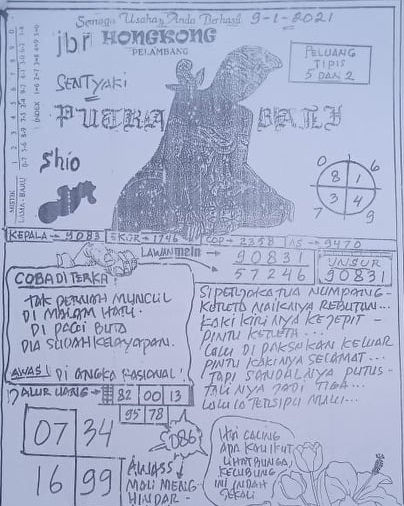 Semoga Usaha Anda Berhasil 9-1-2021
jbr HONGKONG
PELAMBANG
PELUANG
TIPIS
5 DAN 2
SENTYAKI
PUTRA BALI
Shio
0 6
8 1
3 4
7 9
MISTIK
LAMA - BARU
INDEX
KEPALA → 9083 EKOR → 1746 COP → 2358 AS → 9470
LAWAN main → 90831
57246
UNSUR
90831
COBA DI TERKA!
TAK PERNAH MUNCUL
DI MALAM HARI.
DI PAGI BUTA
DIA SUDAH KELAYAPAN.
AWAS! DI ANGKA RASIONAL!
SI PETUAKA TUA NUMPANG-
KAKI KIRINYA KEJEPIT -
PINTU KERETA...
LALU DI PAKSAKAN KELUAR
PINTU KAKINYA SELAMAT...
TAPI SANDALNYA PUTUS-
TALINYA JADI TIGA...
LALU IA TERSIPU MALU...
JALUR UANG → 82 00 13
95 78
07 34
16 99
D86
AWASS
MALI MENG-
HINDAR -
HAI CALING
ADA KAU IKUT
LIHAT BUNGA,
KELUBUNG
INI INDAH
SEKALI